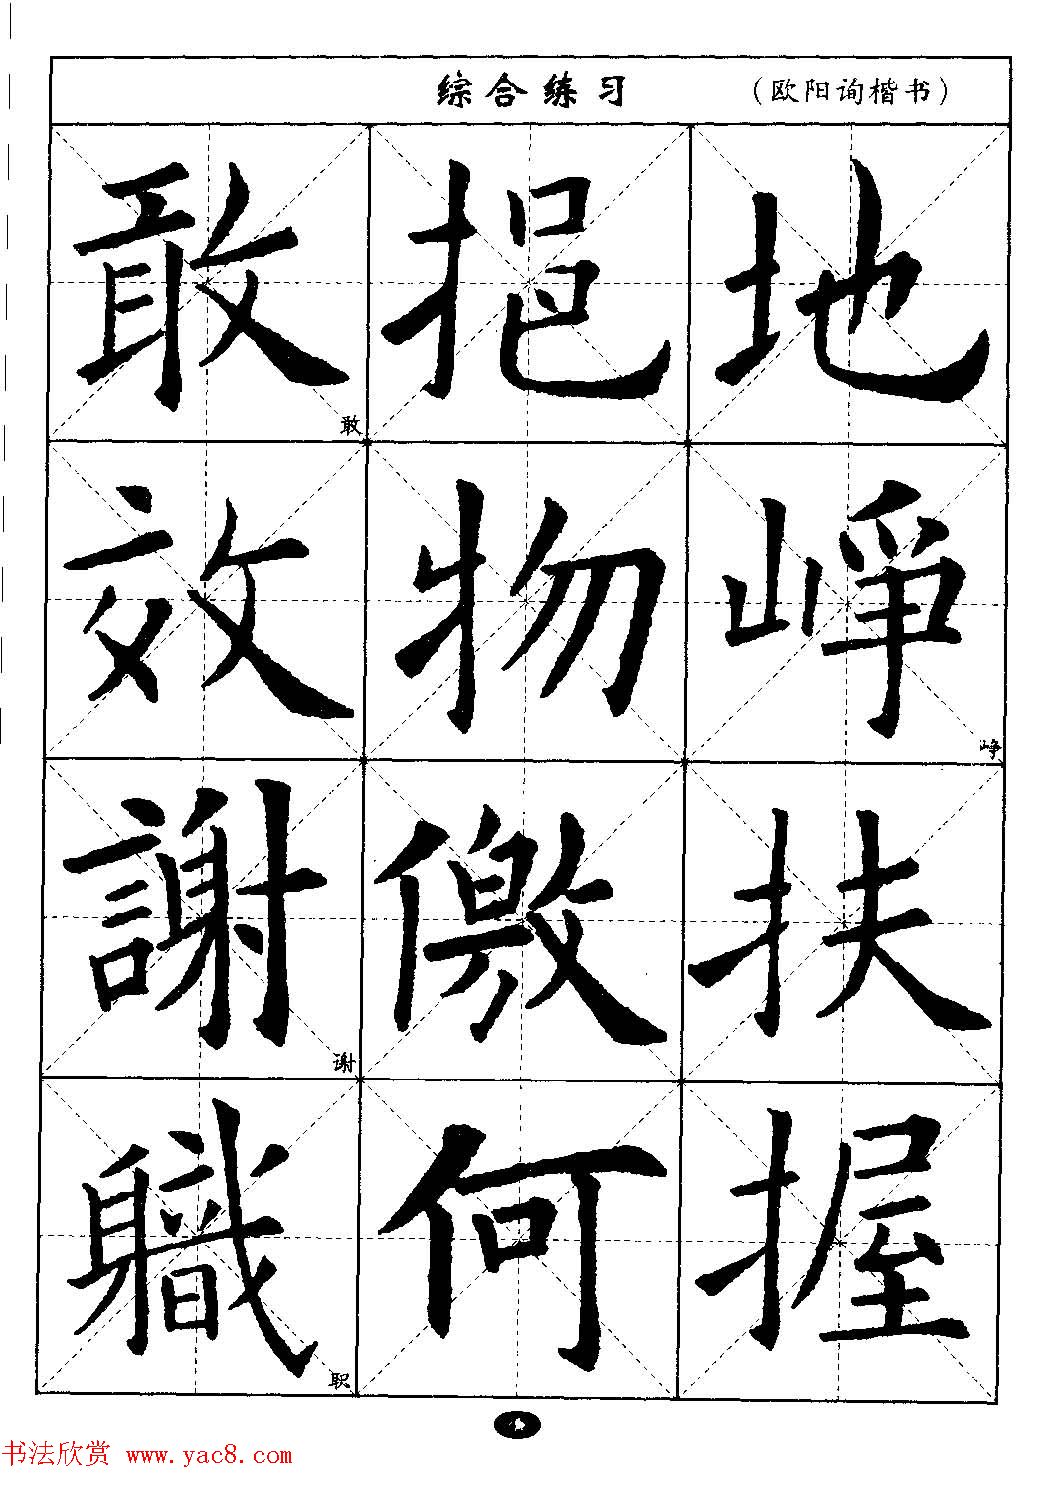 综合练习 （欧阳询楷书）
敢 挹 地
敢
效 物 峥
峥
謝 儌 扶
谢
職 何 握
职
书法欣赏 www.yac8.com